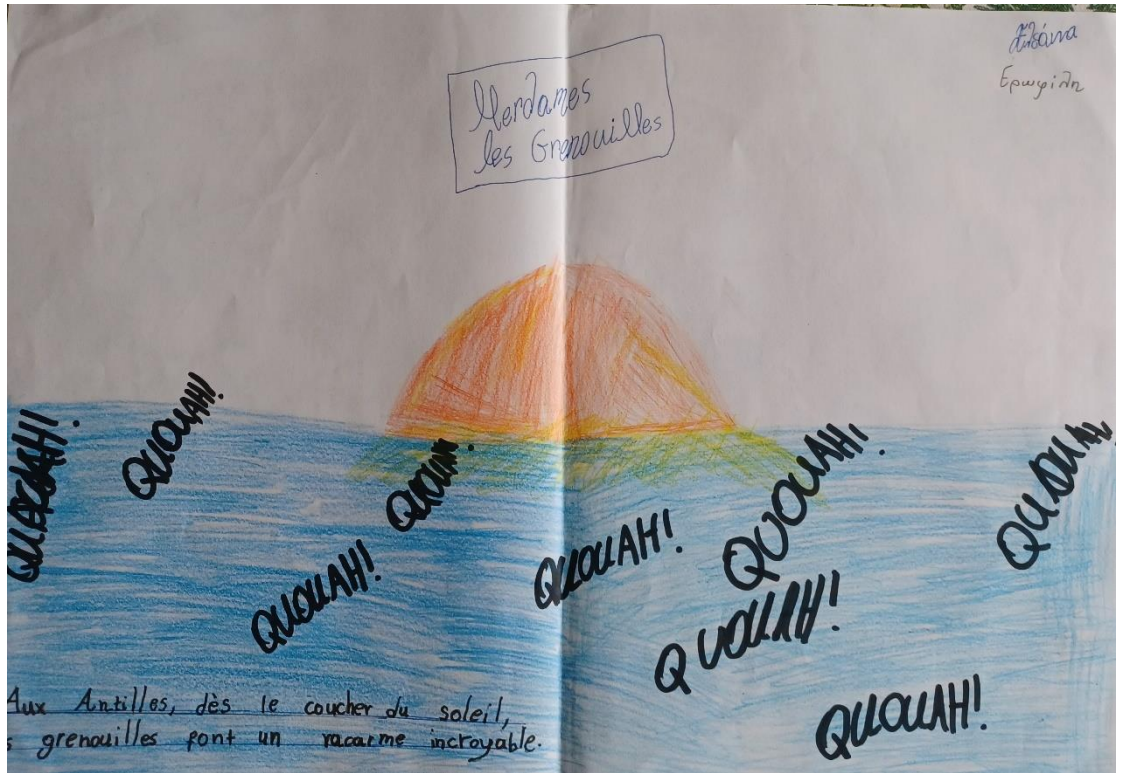 Ερωφίλη
Mesdames
les Grenouilles
QUOUAH!
QUOUAH!
QUOUAH!
QUOUAH!
QUOUAH
QUOUAH!
QUOUAH!
QUOUAH!
Aux Antilles, dès le coucher du soleil,
s grenouilles font un vacarme incroyable.